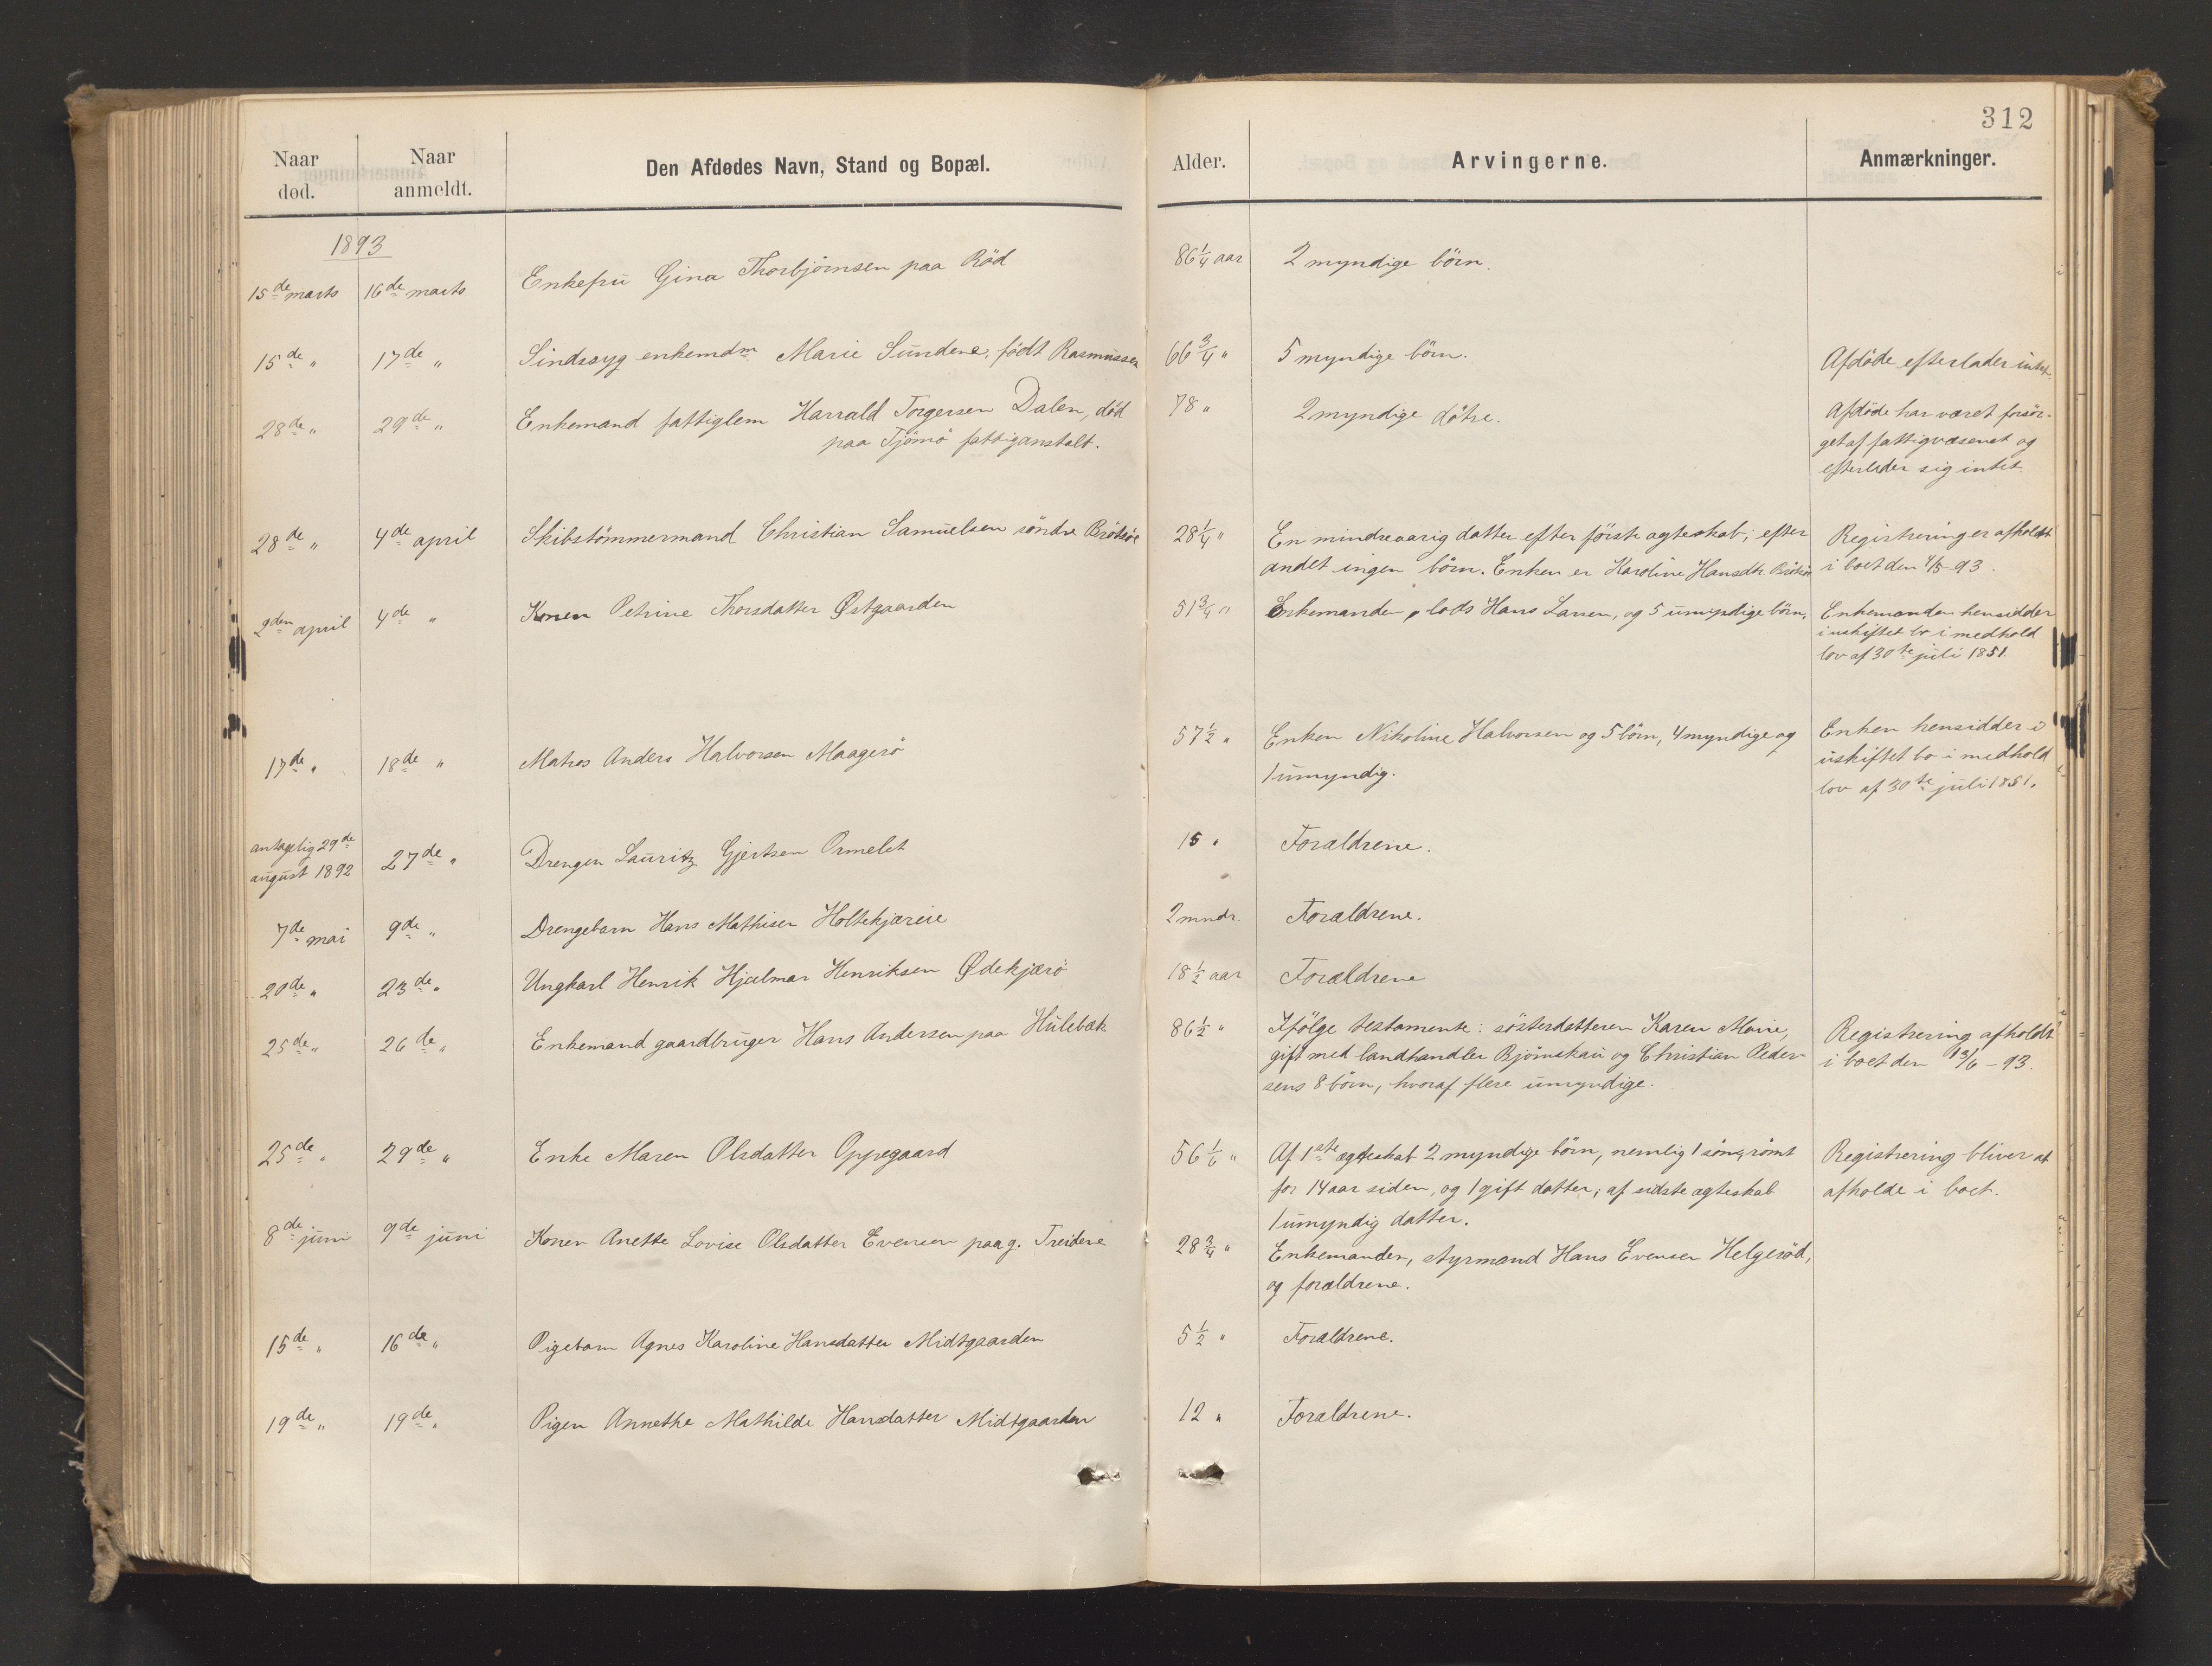 312
Naar død.
Naar anmeldt.
Den Afdødes Navn, Stand og Bopæl.
Alder.
Arvingerne.
Anmærkninger.
1893
15de marts 16de marts Enkefru Gina Thorbjörnsen paa Röd 86 1/4 aar 2 myndige börn.
15de " 17de " Sindssyg enkemdm Marie Sundene, födt Rasmussen 66 3/4 " 5 myndige börn. Afdöde efterlader intet.
28de " 29de " Enkemand fattiglem Harrald Torgersen Dalen, död 78 " 2 myndige dötre. Afdöde har været forsör-
paa Tjömö fattiganstalt. get af fattigvæsenet og
efterlader sig intet.
28de " 4de april Skibstömmermand Christian Samuelsen söndre Brötsöe 28 1/4 " En mindreaarig datter efter förste ægteskab; efter Registrering er afholdt
andet ingen börn. Enken er Karoline Hansdtr. i boet den 4/5 93.
2den april 4de " Konen Petrine Thorsdatter Østgaarden 51 3/4 " Enkemanden, lods Hans Larsen, og 5 umyndige börn. Enkemanden hensidder
i uskiftet bo i medhold
lov af 30te juli 1851.
17de " 18de " Matros Anders Halvorsen Maagerö 57 1/2 " Enken Nikoline Halvorsen og 5 börn, 4 myndige og Enken hensidder i
1 umyndig. uskiftet bo i medhold
lov af 30te juli 1851.
antagelig 29de
august 1892 27de " Drengen Lauritz Gjertsen Ormelet 15 " Forældrene.
7de mai 9de " Drengebarn Hans Mathisen Holtekjæreie 2 mndr. Forældrene.
20de " 23de " Ungkarl Henrik Hjalmar Henriksen Ødekjærö 18 1/2 aar Forældrene
25de " 26de " Enkemand gaardbruger Hans Andersen paa Hulebæk 86 1/2 " Ifölge testamente: sösterdatteren Karen Marie, Registrering afholdt
gift med landhandler Björnskau og Christian Peder- i boet den 13/6 - 93.
sens 8 börn, hvoraf flere umyndige.
25de " 29de " Enke Maren Olsdatter Oppegaard 56 1/6 " Af 1ste ægteskab 2 myndige börn, nemlig 1 sön, römt Registrering bliver at
for 14 aar siden, og 1 gift datter; af sidste ægteskab afholde i boet.
1 umyndig datter.
8de juni 9de juni Konen Anette Lovise Olsdatter Evensen paa g. Treidene 28 3/4 " Enkemanden, styrmand Hans Evensen Helgeröd,
og forældrene.
15de " 16de " Pigebarn Agnes Karoline Hansdatter Midtgaarden 5 1/2 " Forældrene.
19de " 19de " Pigen Annethe Mathilde Hansdatter Midtgaarden 12 " Forældrene.